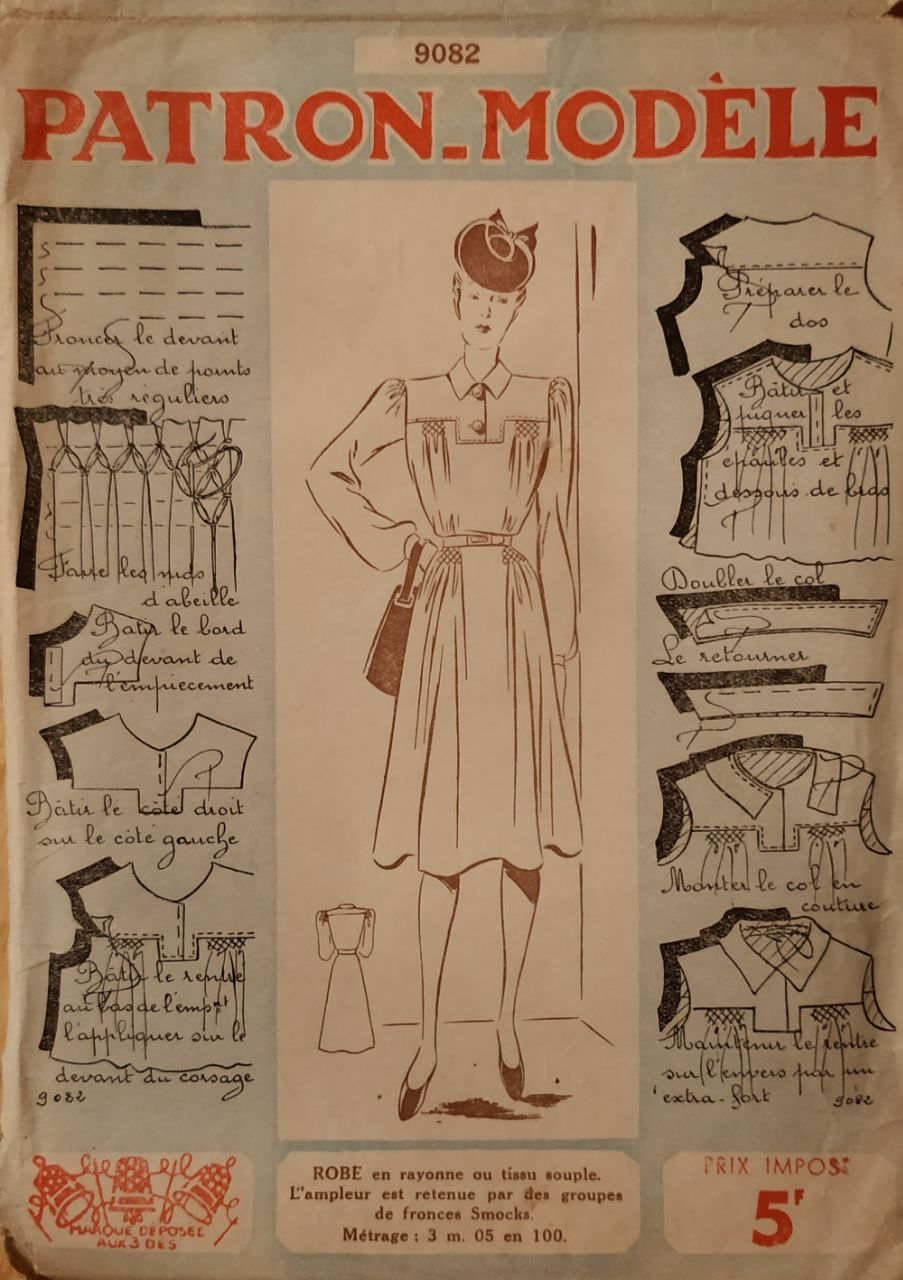 9082
PATRON-MODÈLE
Froncer le devant
au moyen de points
très réguliers
Faire les nids
d'abeille
Bâtir le bord
du devant de
l'empiecement
Bâtir le côté droit
sur le côté gauche
Bâtir le rentré
au bas de l'empnt
l'appliquer sur le
devant du corsage
9082
Préparer le
dos
Bâtir et
piquer les
epaules et
dessous de bras
Doubler le col
Le retourner
Monter le col en
couture
Maintenir le rentre
sur l'envers par un
extra-fort
9082
MARQUE DÉPOSÉE
AUX 3 DES
ROBE en rayonne ou tissu souple.
L'ampleur est retenue par des groupes
de fronces Smocks.
Métrage : 3 m. 05 en 100.
PRIX IMPOSÉ
5F